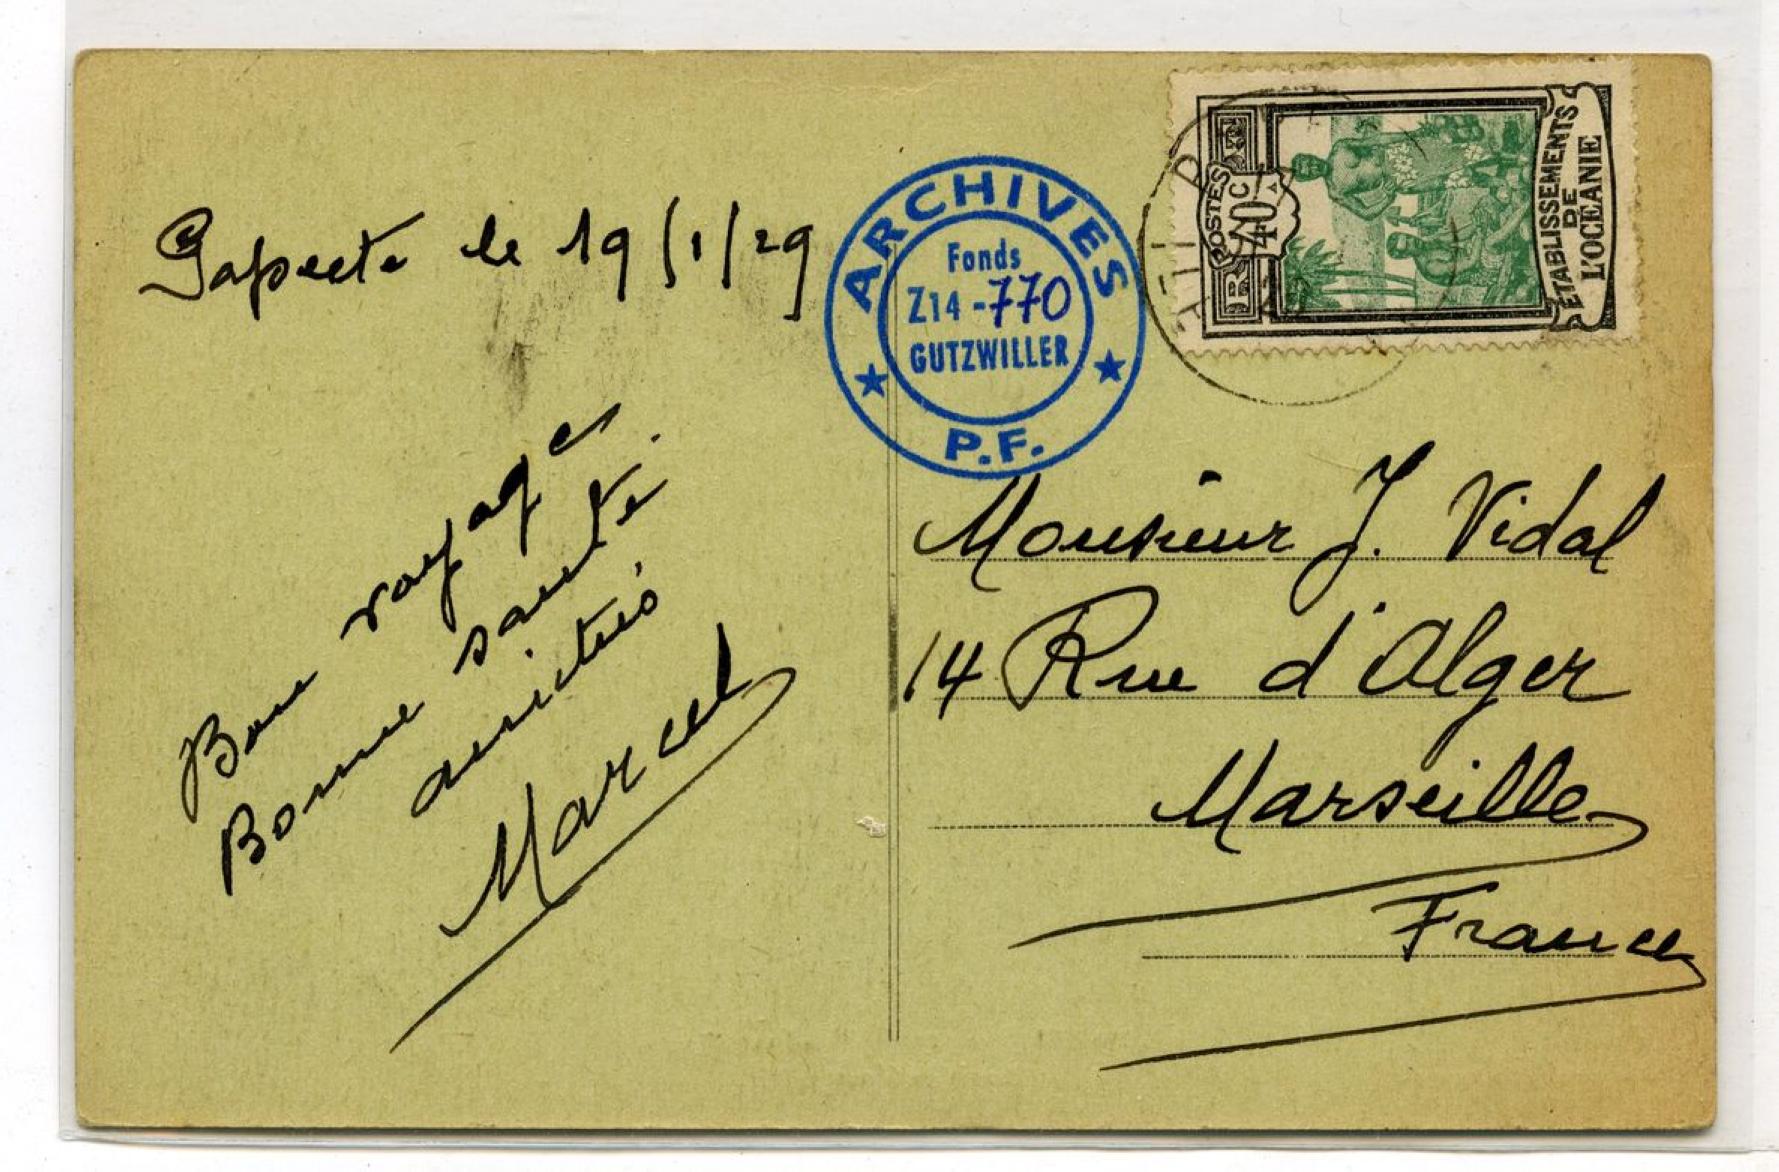 Papeete le 19/1/29
Bon voyage
Bonne santé
amitiés
Marcel
ARCHIVES
Fonds
Z14-770
GUTZWILLER
P.F.
POSTES
40c
RF
ÉTABLISSEMENTS
DE
L'OCÉANIE
Monsieur J. Vidal
14 Rue d'Alger
Marseille
France